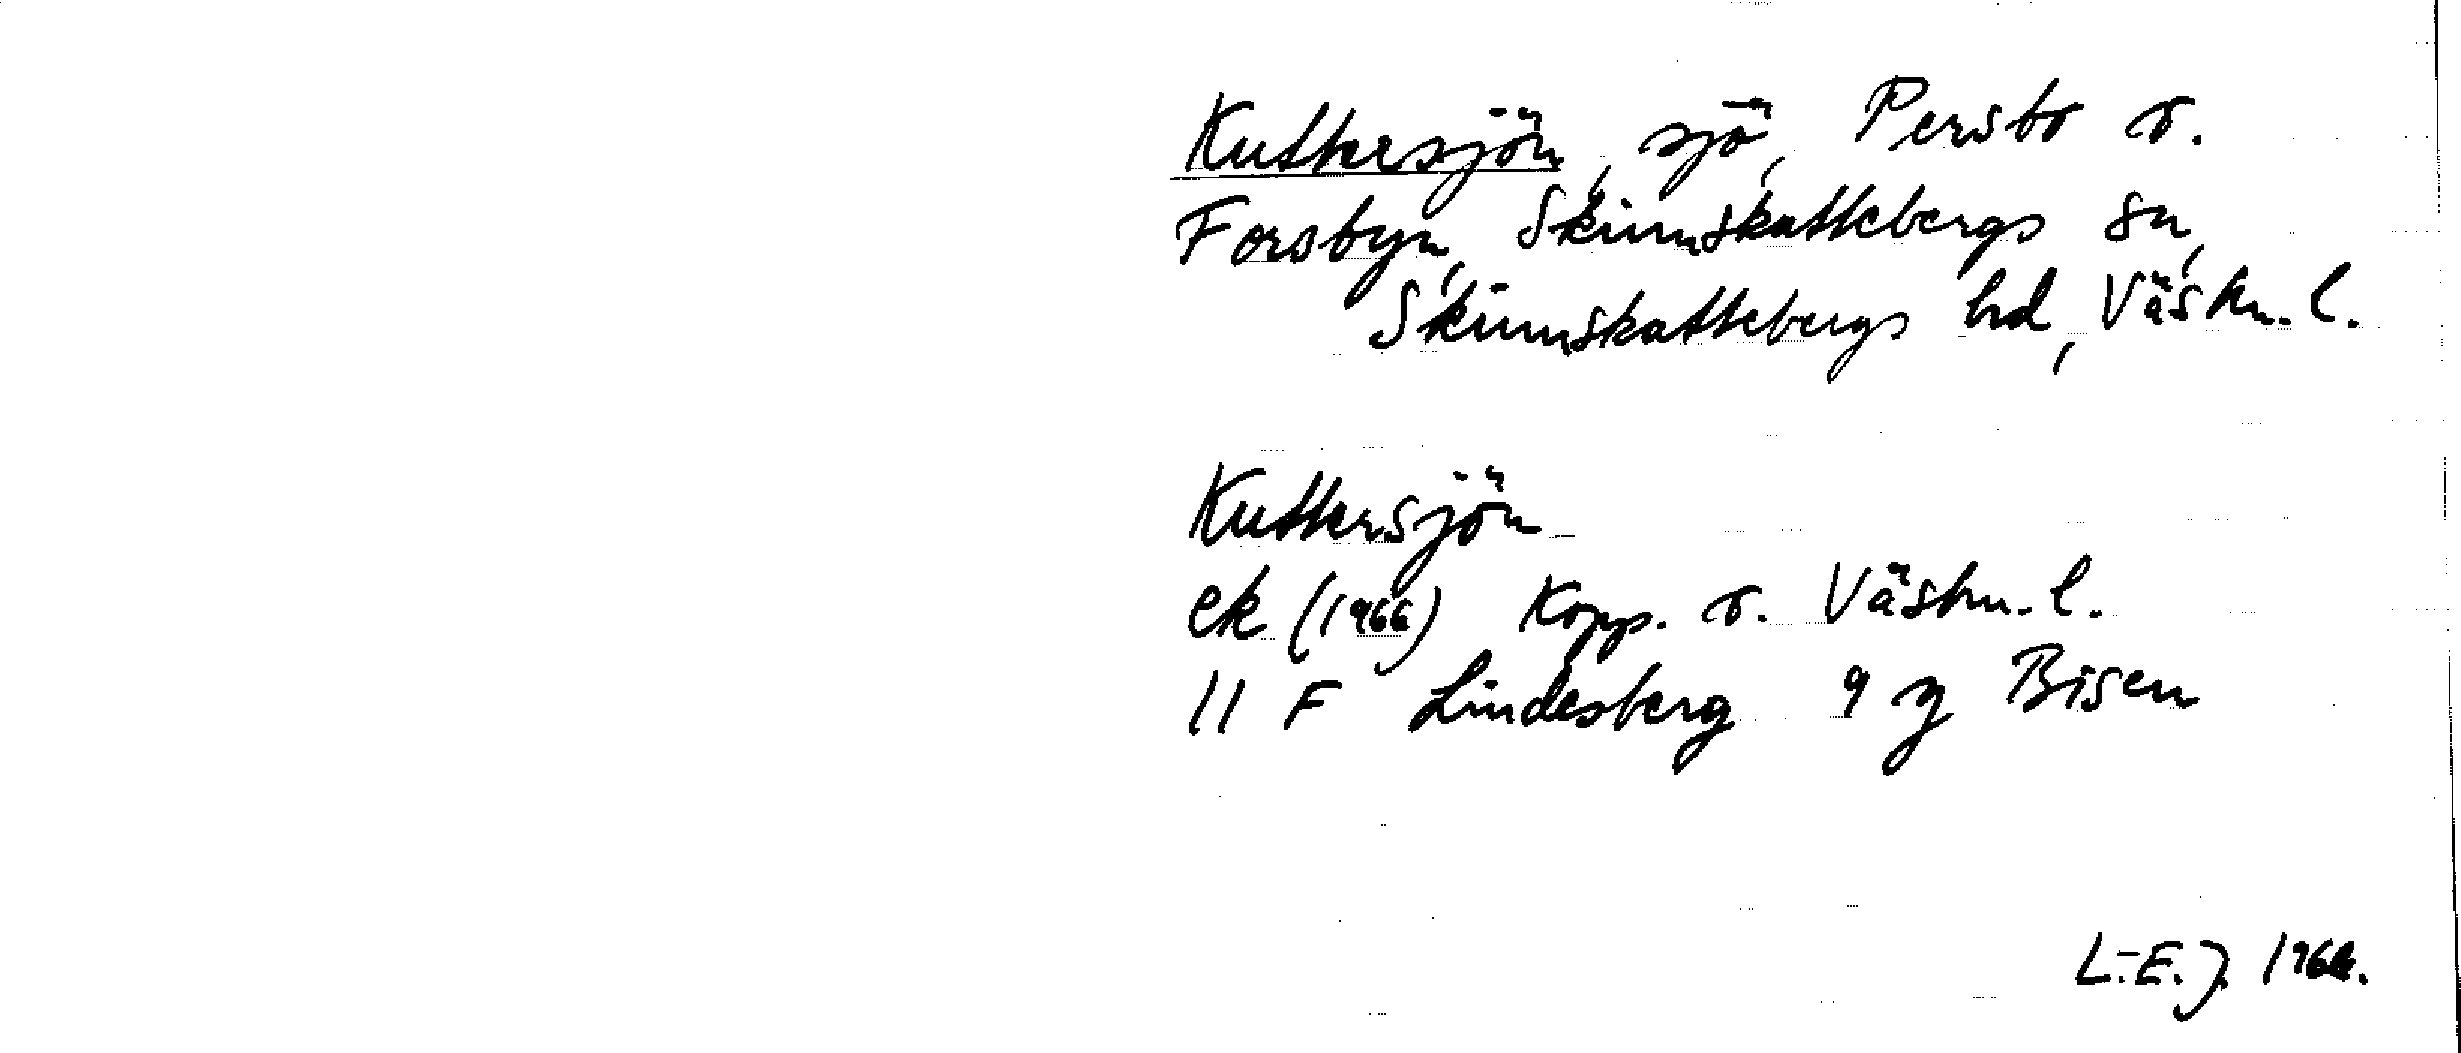 Kuttersjön, sjö, Persbo o.
Forsbyn, Skinnskattebergs sn,
Skinnskattebergs hd, Västm. l.
Kuttersjön
ek (1966) Kopp. o. Västm. l.
11 F Lindesberg 9 g Bisen
L.-E. J.